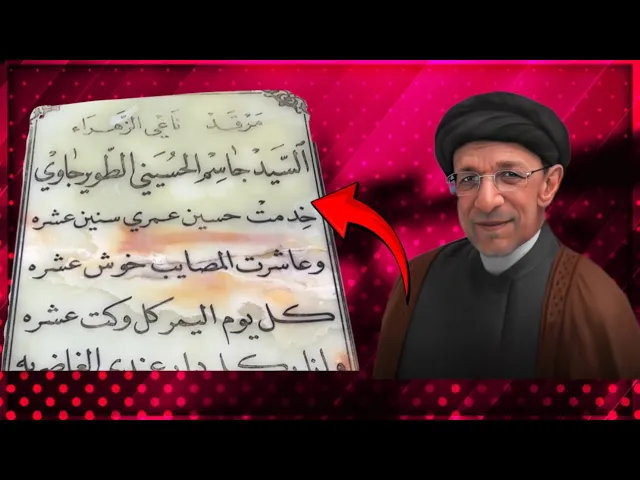 مَرْقَد نَاعِي الزَّهرَاء
السَّيَد جَاسِم الحُسَيني الطّويرجَاوي
خِدمتْ حسين عمري سنين عشره
وعَاشرت المصَايب خوش عشره
كل يوم اليمر كل وكت عشره
الغاضريه